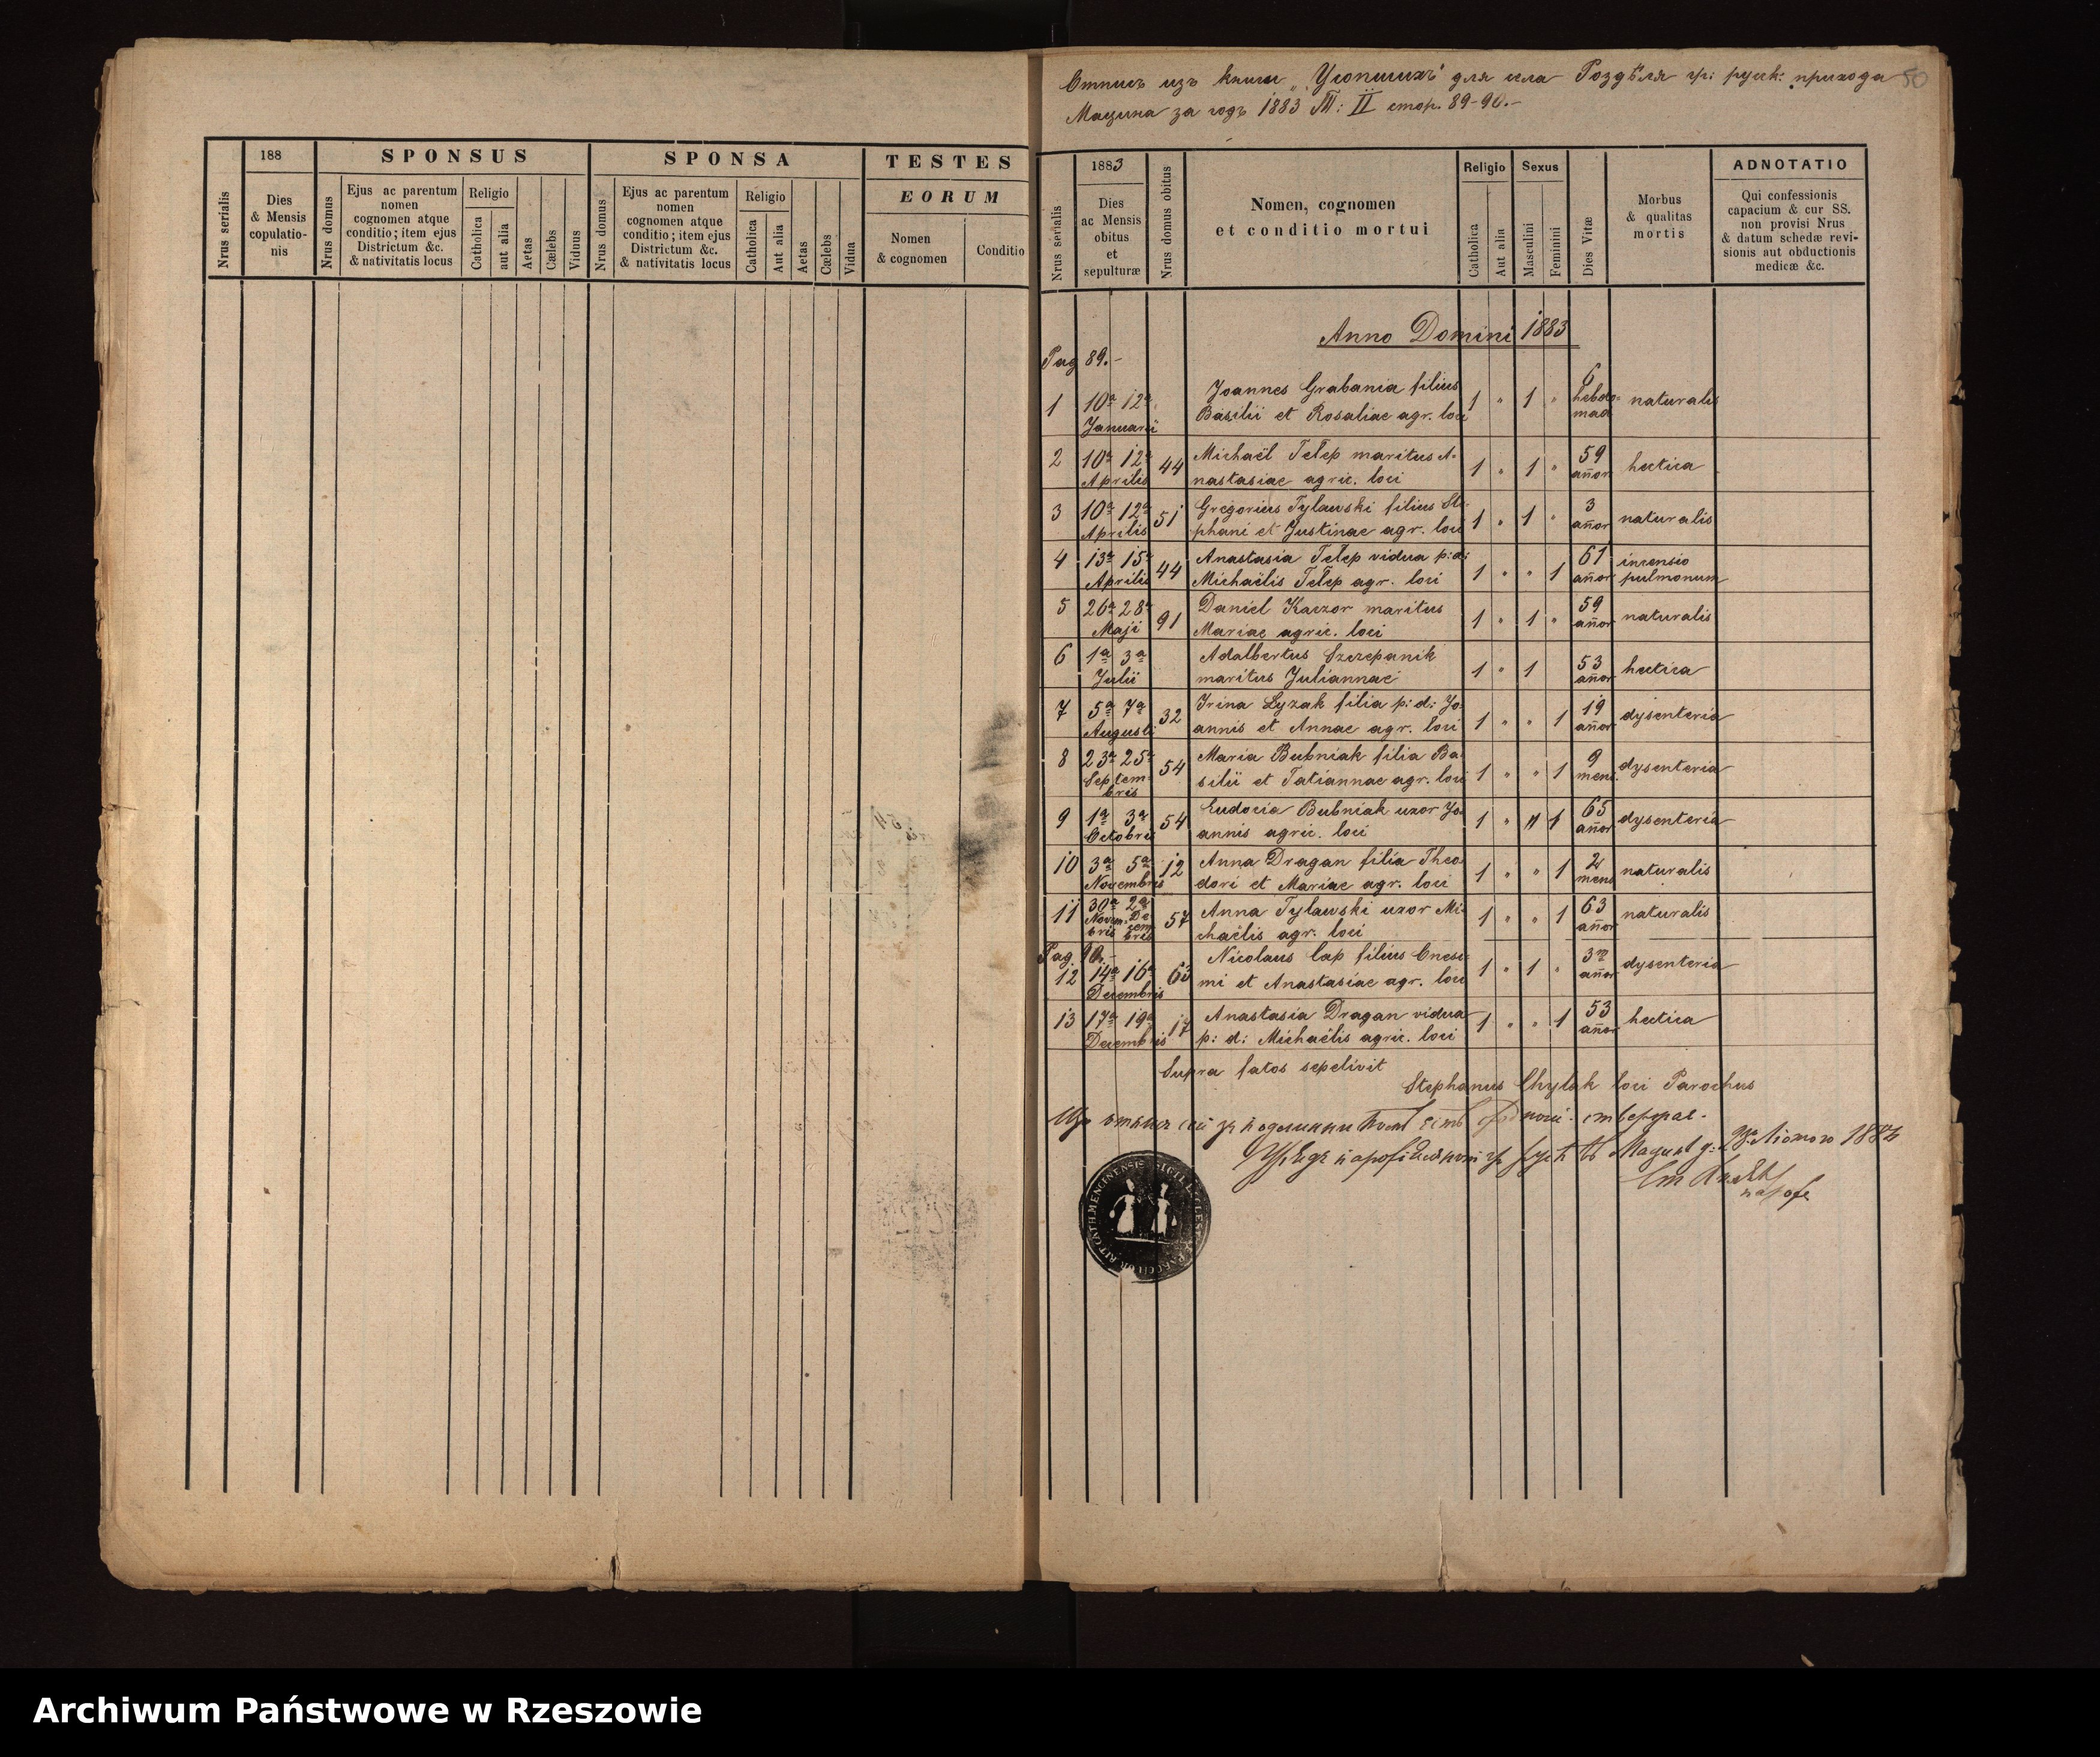 188
SPONSUS
SPONSA
TESTES
EORUM
Nrus serialis
Dies
& Mensis
copulatio-
nis
Nrus domus
Ejus ac parentum
nomen
cognomen atque
conditio; item ejus
Districtum &c.
& nativitatis locus
Religio
Catholica
aut alia
Aetas
Cælebs
Viduus
Nrus domus
Ejus ac parentum
nomen
cognomen atque
conditio; item ejus
Districtum &c.
& nativitatis locus
Religio
Catholica
Aut alia
Aetas
Cælebs
Vidua
Nomen
& cognomen
Conditio
Отпись изъ книги „Усопшихъ" для села Роздѣля гр: руск: прихода
50
Мацина за годъ 1883 Т: II стор. 89-90.-
Nrus serialis
1883
Dies
ac Mensis
obitus
et
sepulturæ
Nrus domus obitus
Nomen, cognomen
et conditio mortui
Religio
Catholica
Aut alia
Sexus
Masculini
Feminini
Dies Vitæ
Morbus
& qualitas
mortis
ADNOTATIO
Qui confessionis
capacium & cur SS.
non provisi Nrus
& datum schedæ revi-
sionis aut obductionis
medicæ &c.
Anno Domini 1883
Pag 89.-
1 10a 12a Januarii Joannes Grabania filius
Basilii et Rosaliae agr. loci 1 " 1 " 6 hebdo-mad naturalis
2 10a 12a Aprilis 44 Michaël Telep maritus A-
nastasiae agric. loci 1 " 1 " 59 añor hectica
3 10a 12a Aprilis 51 Gregorius Tylawski filius Ste-
phani et Justinae agr. loci 1 " 1 " 3 añor naturalis
4 13a 15a Aprilis 44 Anastasia Telep vidua p: d:
Michaëlis Telep agr. loci 1 " " 1 61 añor incensio pulmonum
5 26a 28a Maji 91 Daniel Kaczor maritus
Mariae agric. loci 1 " 1 " 59 añor naturalis
6 1a 3a Julii Adalbertus Szczepanik
maritus Juliannae 1 " 1 53 añor hectica
7 5a 7a Augusti 32 Irina Lyzak filia p: d: Jo-
annis et Annae agr. loci 1 " " 1 19 añor dysenteria
8 23a 25a Septem-bris 54 Maria Bubniak filia Ba-
silii et Tatiannae agr. loci 1 " " 1 9 mens. dysenteria
9 1a 3a Octobris 54 Eudocia Bubniak uxor Jo-
annis agric. loci 1 " " 1 65 añor dysenteria
10 3a 5a Novembris 12 Anna Dragan filia Theo-
dori et Mariae agr. loci 1 " " 1 2 mens naturalis
11 30a Novem-bris 2a De-cem-bris 57 Anna Tylawski uxor Mi-
chaëlis agr. loci 1 " " 1 63 añor naturalis
Pag. 90.-
12 14a 16a Decembris 63 Nicolaus Cap filius Onesi-
mi et Anastasiae agr. loci 1 " 1 " añor dysenteria
13 17a 19a Decembris 17 Anastasia Dragan vidua
p: d: Michaëlis agric. loci 1 " " 1 53 añor hectica
Supra fatos sepelivit
Stephanus Chylak loci Parochus
Archiwum Państwowe w Rzeszowie